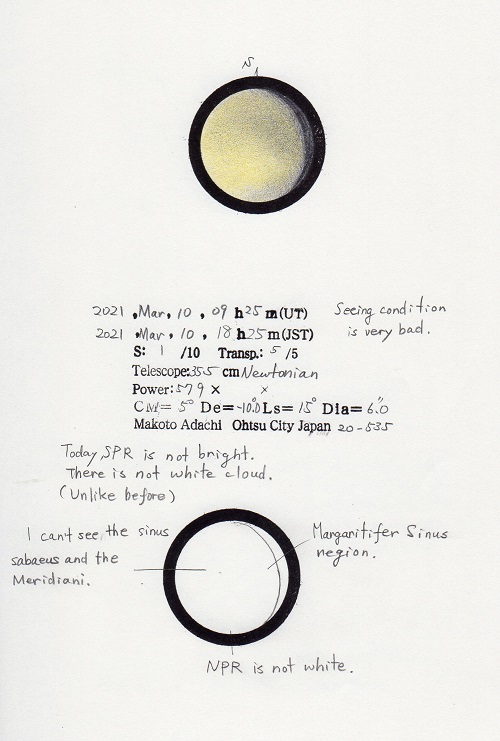 S
2021 , Mar, 10 , 09 h 25 m (UT) Seeing condition
2021 , Mar, 10 , 18 h 25 m (JST) is very bad.
S: 1 /10 Transp.: 5 /5
Telescope: 35.5 cm Newtonian
Power: 579 × ×
CM= 5° De= -10.0 Ls= 15° Dia= 6.″0
Makoto Adachi Ohtsu City Japan 20-535
Today SPR is not bright.
There is not white cloud.
(Unlike before)
I can't see the sinus
sabaeus and the
Meridiani.
Margaritifer Sinus
negion.
NPR is not white.